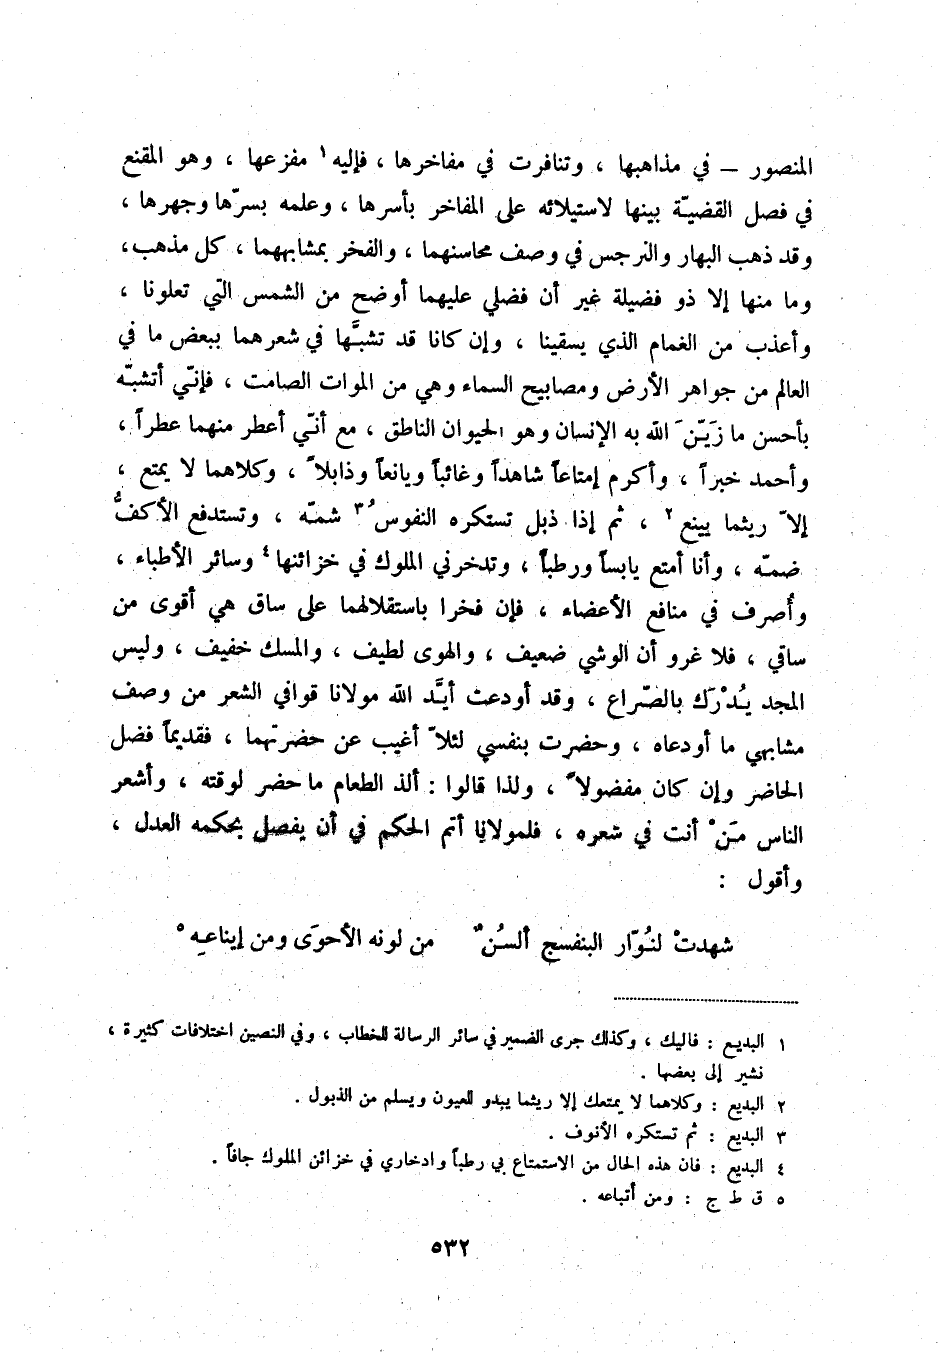 المنصور — في مذاهبها ، وتنافرت في مفاخرها ، فإليه ١ مفزعها ، وهو المقنع
في فصل القضيّة بينها لاستيلائه على المفاخر بأسرها ، وعلمه بسرّها وجهرها ،
وقد ذهب البهار والنرجس في وصف محاسنهما ، والفخر بمشابههما ، كل مذهب ،
وما منها إلا ذو فضيلة غير أن فضلي عليهما أوضح من الشمس التي تعلونا ،
وأعذب من الغمام الذي يسقينا ، وإن كانا قد تشبَّها في شعرهما ببعض ما في
العالم من جواهر الأرض ومصابيح السماء وهي من الموات الصامت ، فإنّي أتشبّه
بأحسن ما زَيَّنَ الله به الإنسان وهو الحيوان الناطق ، مع أنّي أعطر منهما عطراً ،
وأحمد خبراً ، وأكرم إمتاعاً شاهداً وغائباً ويانعاً وذابلاً ، وكلاهما لا يمتع ،
إلاّ ريثما يينع ٢ ، ثم إذا ذبل تستكره النفوسُ ٣ شمّه ، وتستدفع الأكفُّ
ضمّه ، وأنا أمتع يابساً ورطباً ، وتدخرني الملوك في خزائنها ٤ وسائر الأطباء ،
وأُصرف في منافع الأعضاء ، فإن فخرا باستقلالهما على ساق هي أقوى من
ساقي ، فلا غرو أن الوشي ضعيف ، والهوى لطيف ، والمسك خفيف ، وليس
المجد يُدْرَك بالصّراع ، وقد أودعت أيَّد الله مولانا قوافي الشعر من وصف
مشابهي ما أودعاه ، وحضرت بنفسي لئلاّ أغيب عن حضرتهما ، فقديماً فضل
الحاضر وإن كان مفضولاً ، ولذا قالوا : ألذ الطعام ما حضر لوقته ، وأشعر
الناس مَنْ أنت في شعره ، فلمولايا أتم الحكم في أن يفصل بحكمه العدل ،
وأقول :
شهدتْ لنُوّار البنفسج ألسُنٌ من لونه الأحوَى ومن إيناعهِ ٥
١ البديع : فاليك ، وكذلك جرى الضمير في سائر الرسالة للخطاب ، وفي النصين اختلافات كثيرة ،
نشير إلى بعضها .
٢ البديع : وكلاهما لا يمتعك إلا ريثما يبدو للعيون ويسلم من الذبول .
٣ البديع : ثم تستكره الأنوف .
٤ البديع : فان هذه الحال من الاستمتاع بي رطباً وادخاري في خزائن الملوك جافاً .
٥ ق ط ج : ومن أتباعه .
٥٣٢